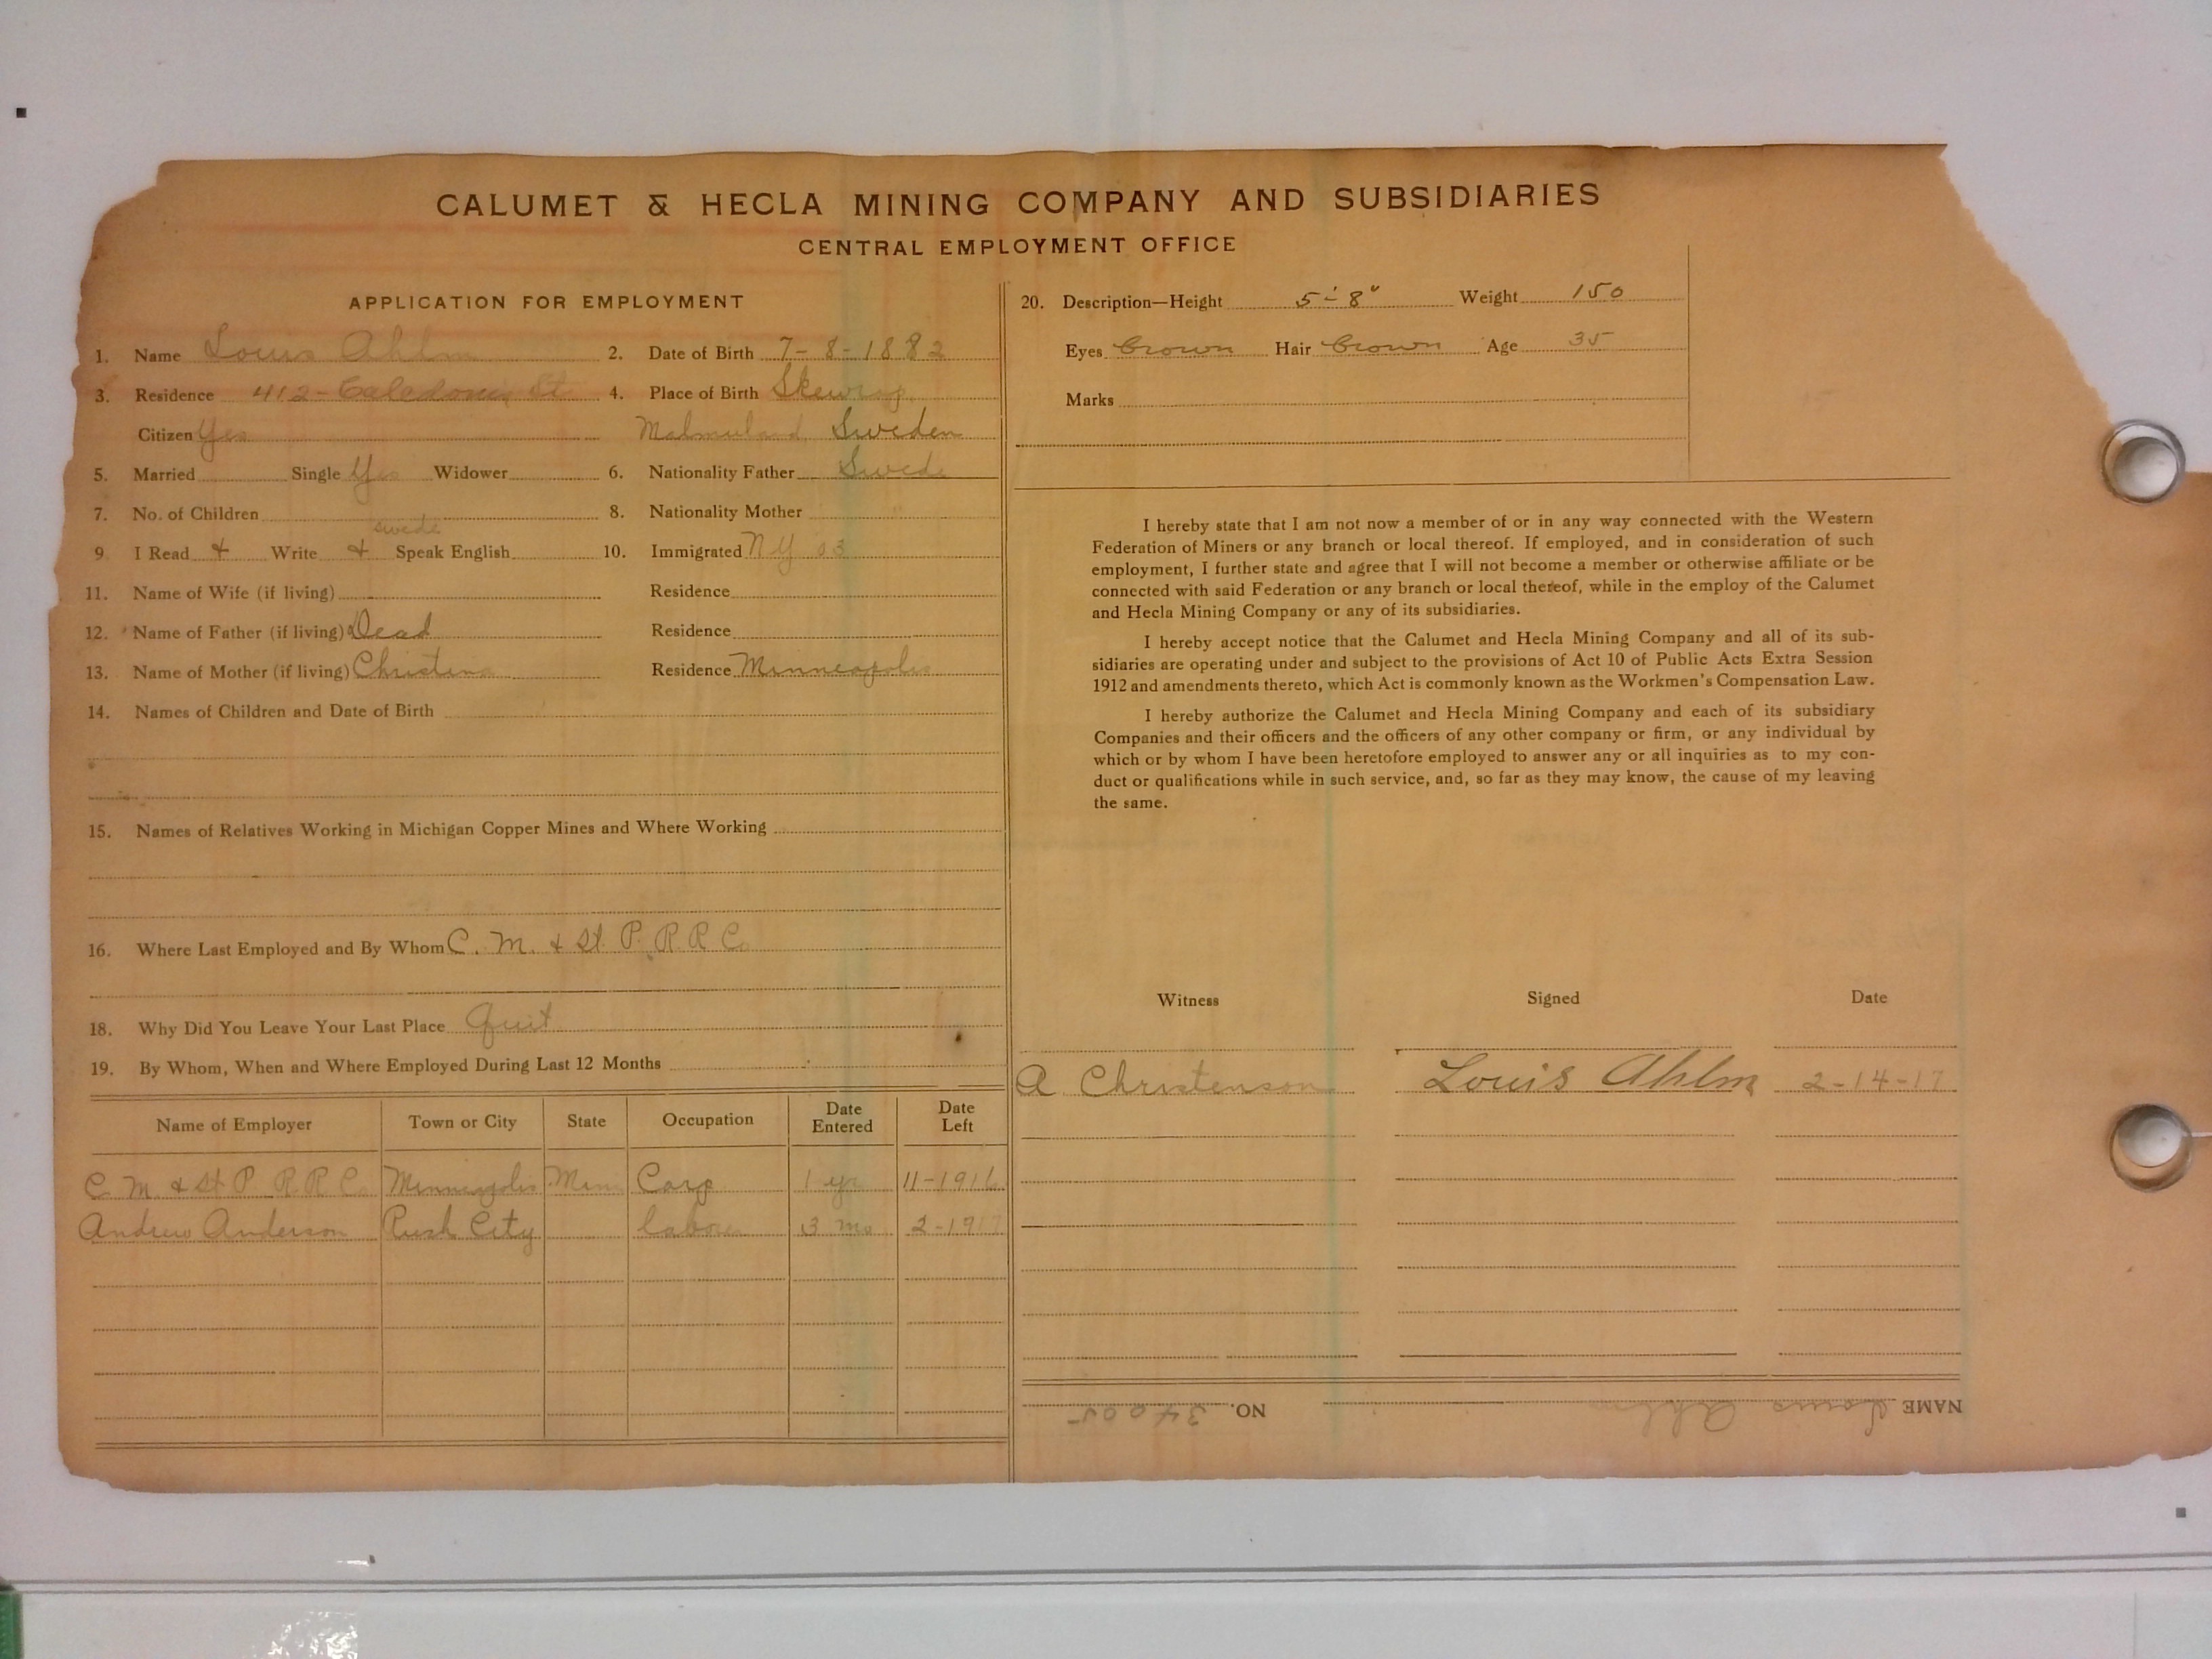 CALUMET & HECLA MINING COMPANY AND SUBSIDIARIES
CENTRAL EMPLOYMENT OFFICE
APPLICATION FOR EMPLOYMENT
1. Name Louis Ahlm 2. Date of Birth 7-8-1882
3. Residence 412-Caledonia St 4. Place of Birth
Citizen Yes Sweden
5. Married Single Yes Widower 6. Nationality Father Swede
7. No. of Children 8. Nationality Mother
swede
9. I Read + Write + Speak English 10. Immigrated NY 03
11. Name of Wife (if living) Residence
12. Name of Father (if living) Dead Residence
13. Name of Mother (if living) Christina Residence Minneapolis
14. Names of Children and Date of Birth
15. Names of Relatives Working in Michigan Copper Mines and Where Working
16. Where Last Employed and By Whom C. M. & St. P. R R C.
18. Why Did You Leave Your Last Place Quit
19. By Whom, When and Where Employed During Last 12 Months
Name of Employer Town or City State Occupation Date Entered Date Left
C M & St P R R C. Minneapolis Minn Carp 1 yr 11-1916
Andrew Anderson Rush City labor 3 mo 2-1917
20. Description—Height 5'-8" Weight 150
Eyes brown Hair brown Age 35
Marks
I hereby state that I am not now a member of or in any way connected with the Western
Federation of Miners or any branch or local thereof. If employed, and in consideration of such
employment, I further state and agree that I will not become a member or otherwise affiliate or be
connected with said Federation or any branch or local thereof, while in the employ of the Calumet
and Hecla Mining Company or any of its subsidiaries.
I hereby accept notice that the Calumet and Hecla Mining Company and all of its sub-
sidiaries are operating under and subject to the provisions of Act 10 of Public Acts Extra Session
1912 and amendments thereto, which Act is commonly known as the Workmen's Compensation Law.
I hereby authorize the Calumet and Hecla Mining Company and each of its subsidiary
Companies and their officers and the officers of any other company or firm, or any individual by
which or by whom I have been heretofore employed to answer any or all inquiries as to my con-
duct or qualifications while in such service, and, so far as they may know, the cause of my leaving
the same.
Witness Signed Date
A Christenson Louis Ahlm 2-14-17
NAME Louis Ahlm NO. 34005